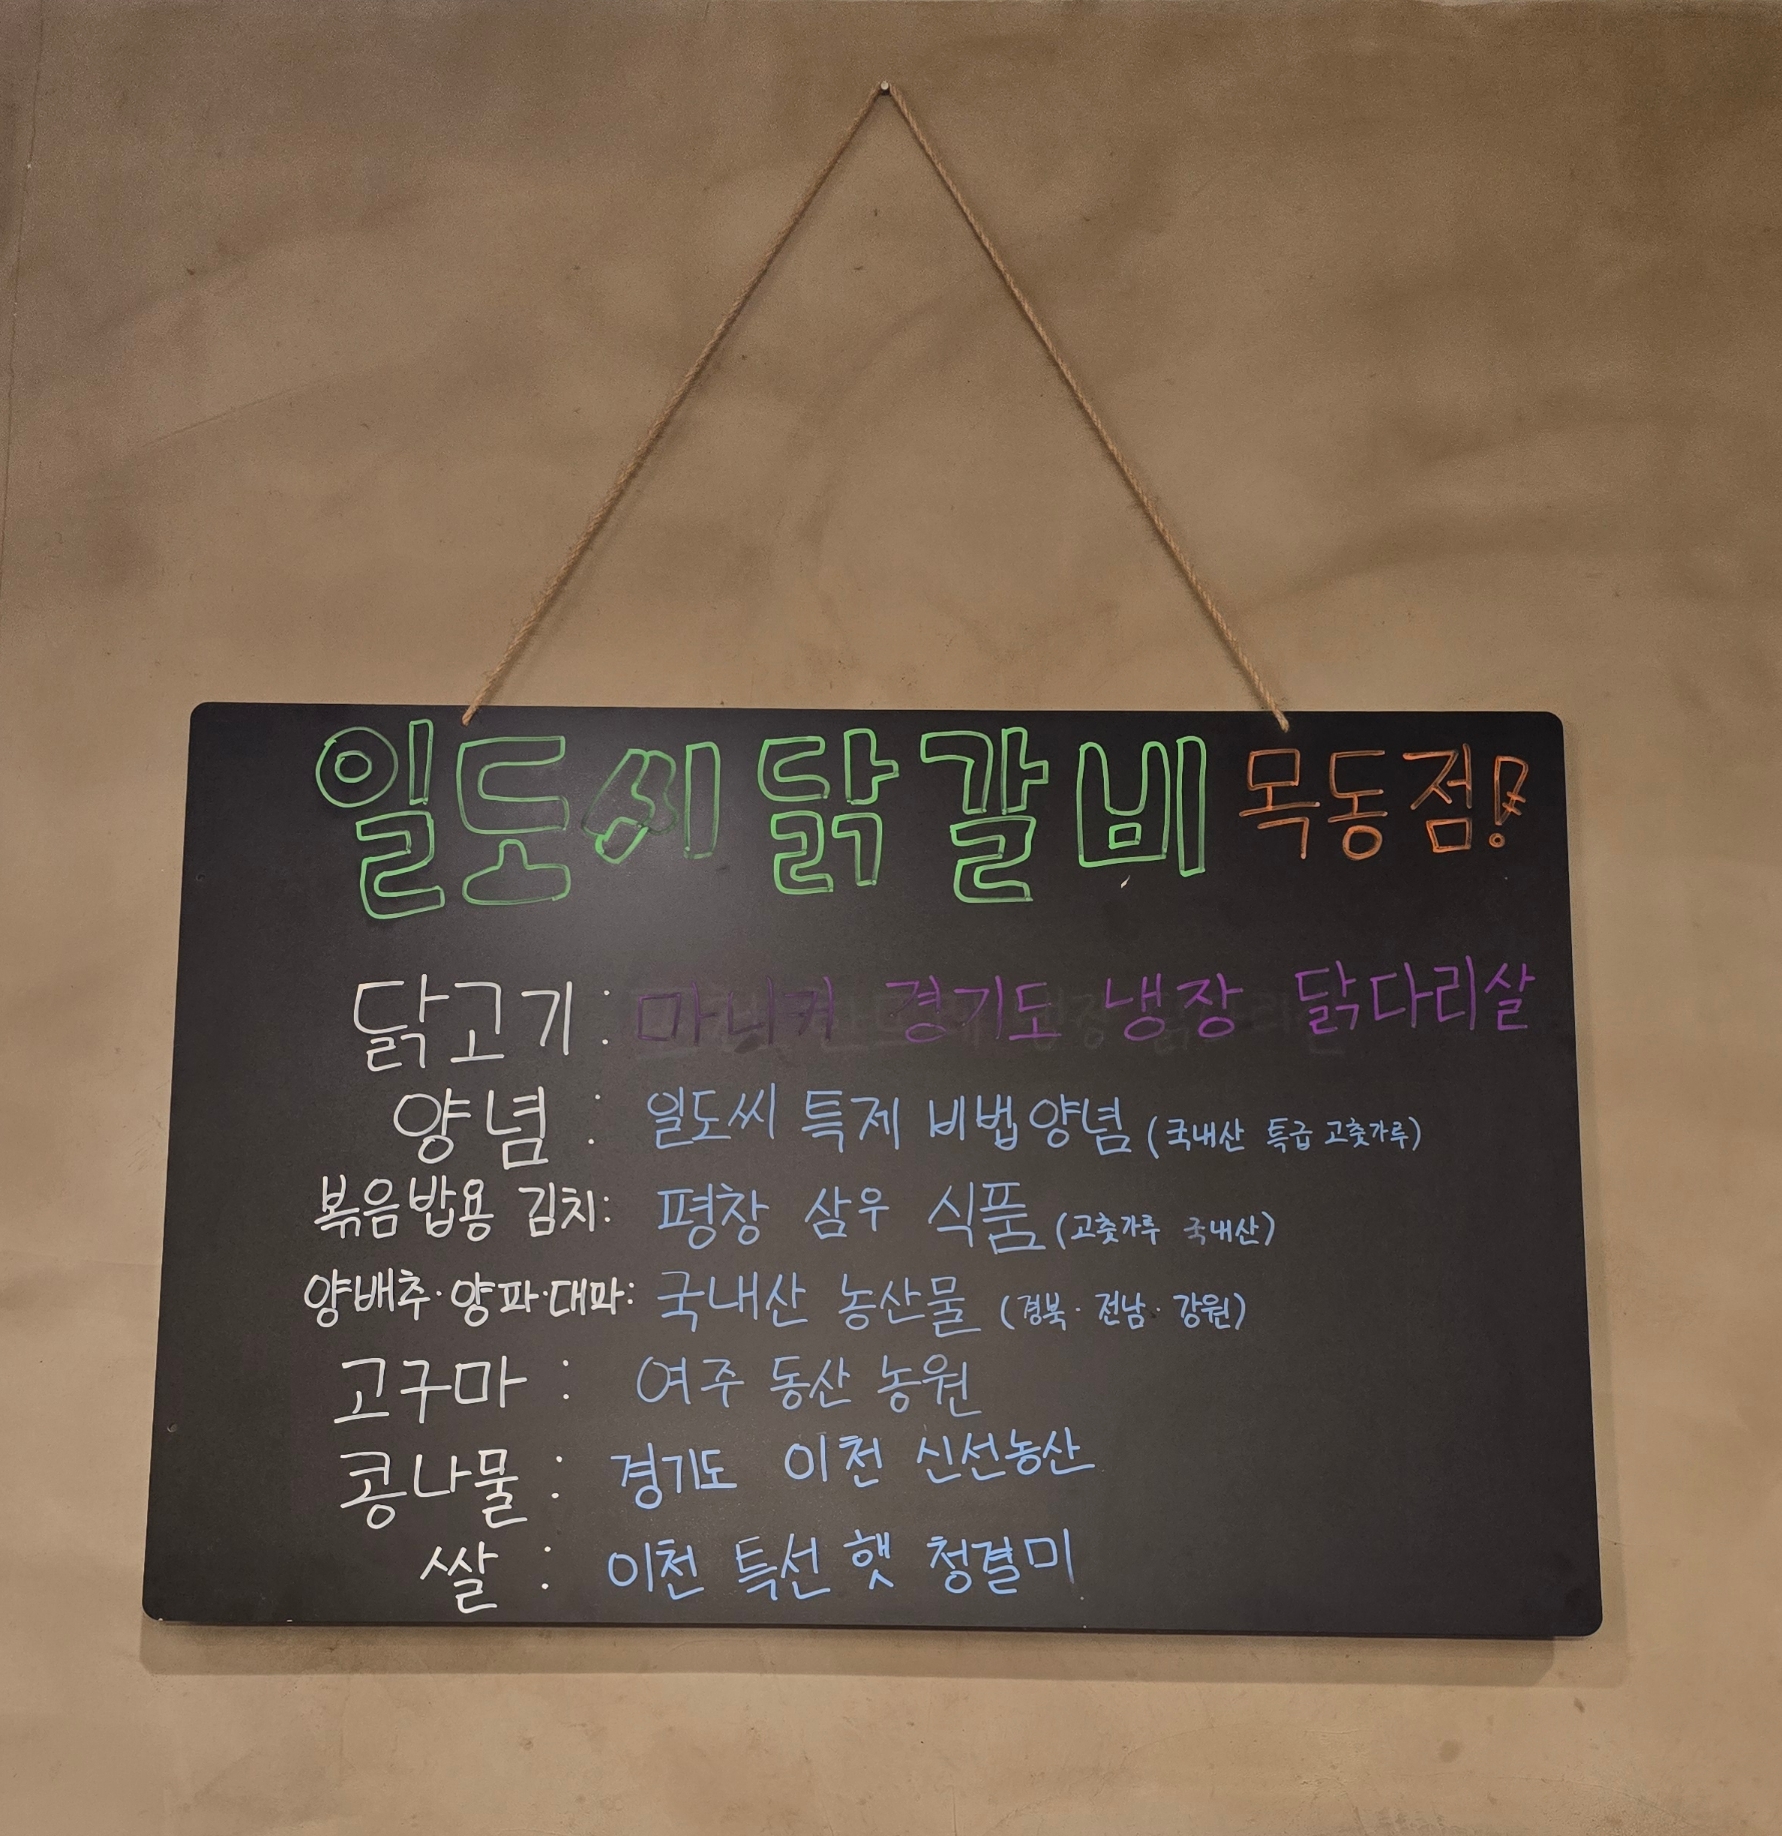 일도씨닭갈비 목동점!
닭고기 : 마니커 경기도 냉장 닭다리살
양념 : 일도씨 특제 비법양념 (국내산 특급 고춧가루)
볶음밥용 김치: 평창 삼우 식품 (고춧가루 국내산)
양배추·양파·대파: 국내산 농산물 (경북·전남·강원)
고구마 : 여주 동산 농원
콩나물 : 경기도 이천 신선농산
쌀 : 이천 특선 햇 청결미